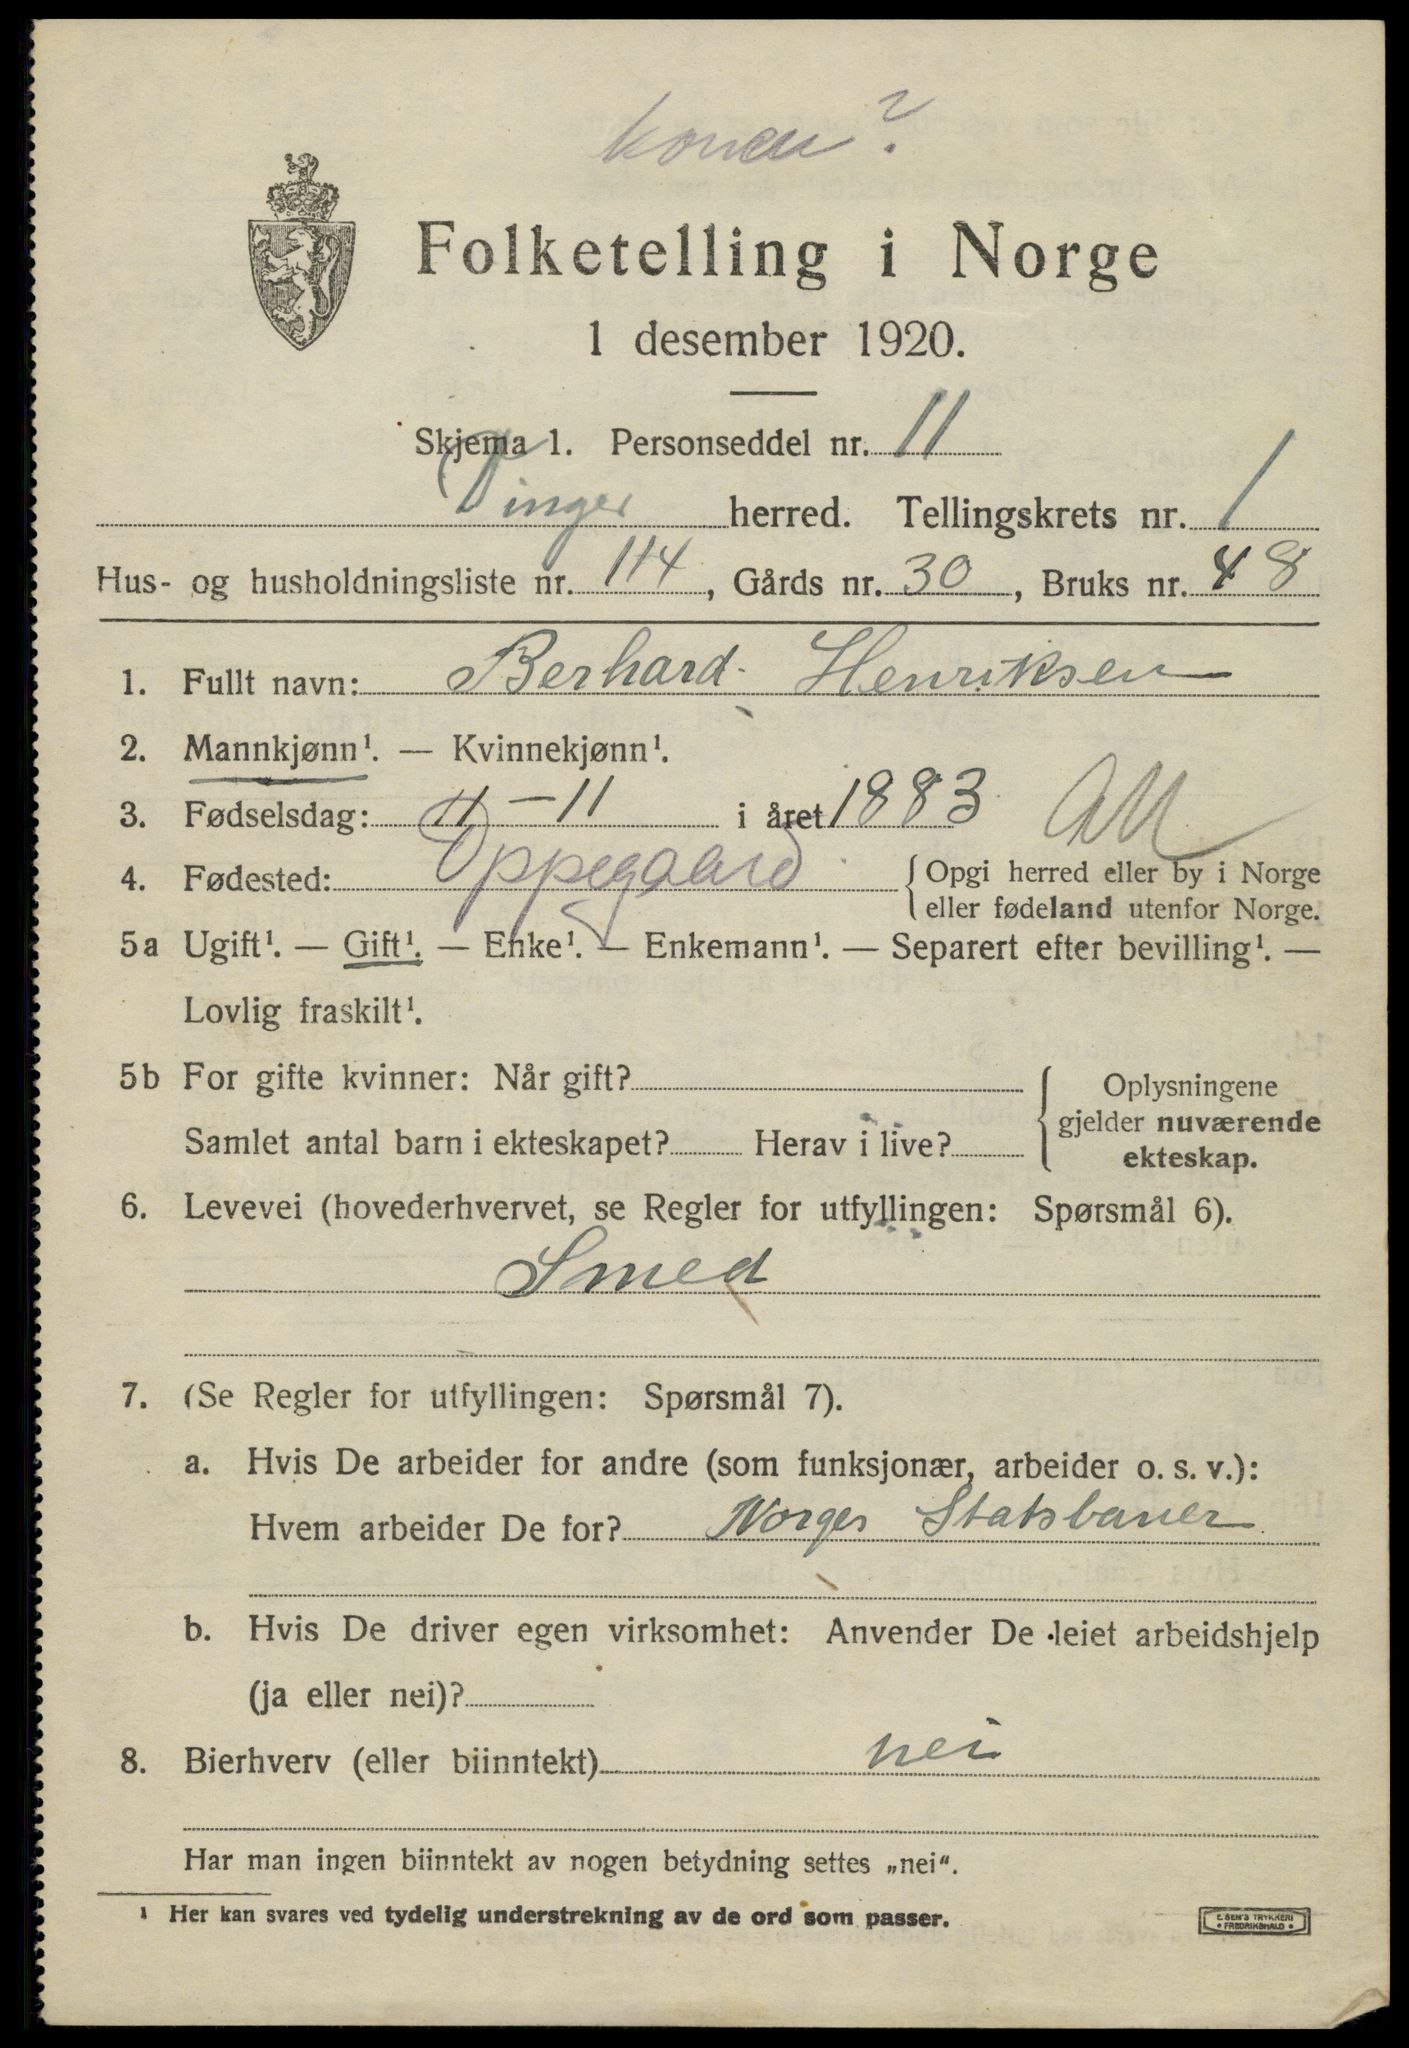 konen?
Folketelling i Norge
1 desember 1920.
Skjema 1. Personseddel nr. 11
Vinger herred. Tellingskrets nr. 1
Hus- og husholdningsliste nr. 114, Gårds nr. 30, Bruks nr. 48
1. Fullt navn: Berhard Henriksen
2. Mannkjønn¹. — Kvinnekjønn¹.
3. Fødselsdag: 11 - 11 i året 1883
4. Fødested: Oppegaard {Opgi herred eller by i Norge
eller fødeland utenfor Norge.
5a Ugift¹. — Gift¹. — Enke¹. — Enkemann¹. — Separert efter bevilling¹. —
Lovlig fraskilt¹.
5b For gifte kvinner: Når gift?
Samlet antal barn i ekteskapet? Herav i live?
Oplysningene
gjelder nuværende
ekteskap.
6. Levevei (hovederhvervet, se Regler for utfyllingen: Spørsmål 6).
Smed
7. (Se Regler for utfyllingen: Spørsmål 7).
a. Hvis De arbeider for andre (som funksjonær, arbeider o. s. v.):
Hvem arbeider De for? Norges Statsbaner
b. Hvis De driver egen virksomhet: Anvender De leiet arbeidshjelp
(ja eller nei)?
8. Bierhverv (eller biinntekt) nei
Har man ingen biinntekt av nogen betydning settes „nei“.
¹ Her kan svares ved tydelig understrekning av de ord som passer.
TRYKKERI
FREDRIKSHALD